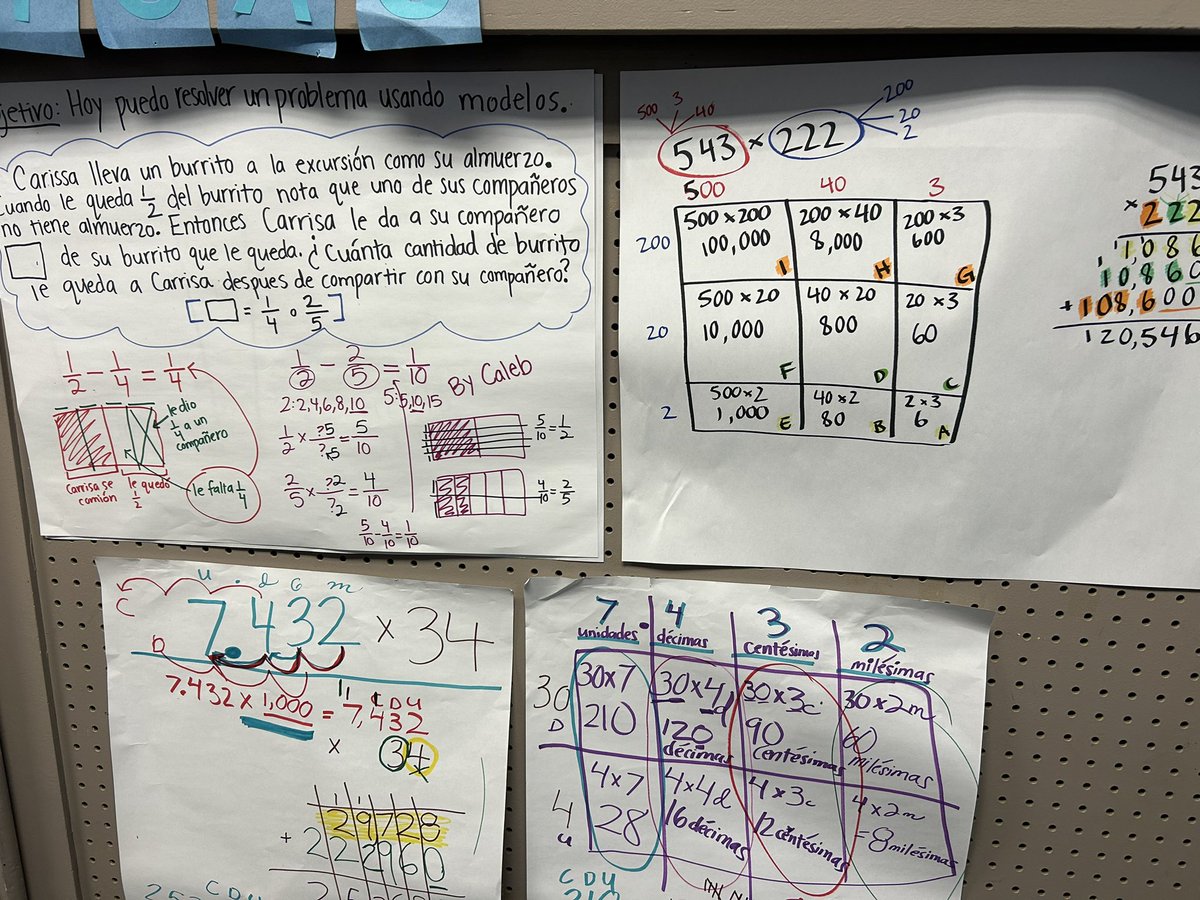 jetivo: Hoy puedo resolver un problema usando modelos.
Carissa lleva un burrito a la excursión como su almuerzo.
Cuando le queda 1/2 del burrito nota que uno de sus compañeros
no tiene almuerzo. Entonces Carrisa le da a su compañero
de su burrito que le queda. ¿Cuánta cantidad de burrito
le queda a Carrisa despues de compartir con su compañero?
[□ = 1/4 o 2/5]
1/2 - 1/4 = 1/4
le dio
1/4 a un
compañero
Carrisa se
comión
le quedo
1/2
le falta 1/4
1/2 - 2/5 = 1/10
By Caleb
2:2,4,6,8,10
5:5,10,15
1/2 × ?5/?5 = 5/10
2/5 × ?2/?2 = 4/10
5/10 - 4/10 = 1/10
5/10 = 1/2
4/10 = 2/5
500 3 40
200
20
2
543 × 222
500 40 3
200
500 × 200 200 × 40 200 × 3
100,000 8,000 600
I H G
20
500 × 20 40 × 20 20 × 3
10,000 800 60
F D C
2
500 × 2 40 × 2 2 × 3
1,000 80 6
E B A
543
× 222
1,086
10,860
+ 108,600
120,546
U . d c m
C
D
7.432 × 34
7.432 × 1,000 = 7,432
C D U
× 34
29728
+ 222960
7. 4 3 2
unidades. décimas centésimas milésimas
30
D
30×7 30×4d 30×3c 30×2m
210 120 90 60
décimas centésimas milésimas
4
u
4×7 4×4d 4×3c 4×2m
28 16 décimas 12 centésimas = 8 milésimas
C D U
210